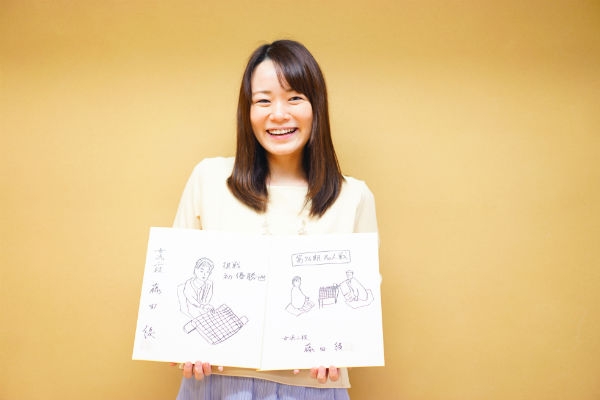 女流二段 藤田 綾
棋戦
初優勝
第76期 名人戦
女流二段
藤田 綾